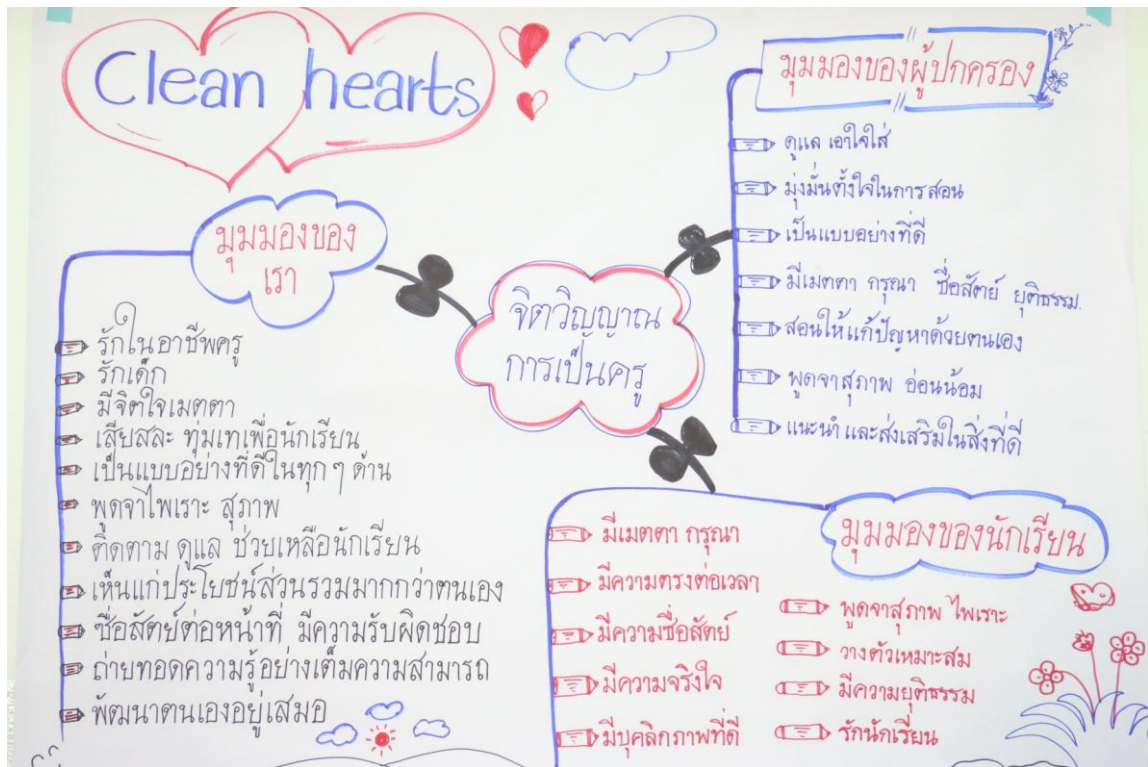 Clean hearts
จิตวิญญาณ
การเป็นครู
มุมมองของ
เรา
รักในอาชีพครู
รักเด็ก
มีจิตใจเมตตา
เสียสละ ทุ่มเทเพื่อนักเรียน
เป็นแบบอย่างที่ดีในทุกๆ ด้าน
พูดจาไพเราะ สุภาพ
ติดตาม ดูแล ช่วยเหลือนักเรียน
เห็นแก่ประโยชน์ส่วนรวมมากกว่าตนเอง
ซื่อสัตย์ต่อหน้าที่ มีความรับผิดชอบ
ถ่ายทอดความรู้อย่างเต็มความสามารถ
พัฒนาตนเองอยู่เสมอ
มุมมองของผู้ปกครอง
ดูแล เอาใจใส่
มุ่งมั่นตั้งใจในการสอน
เป็นแบบอย่างที่ดี
มีเมตตา กรุณา ซื่อสัตย์ ยุติธรรม.
สอนให้แก้ปัญหาด้วยตนเอง
พูดจาสุภาพ อ่อนน้อม
แนะนำ และส่งเสริมในสิ่งที่ดี
มุมมองของนักเรียน
มีเมตตา กรุณา
มีความตรงต่อเวลา
มีความซื่อสัตย์
มีความจริงใจ
มีบุคลิกภาพที่ดี
พูดจาสุภาพ ไพเราะ
วางตัวเหมาะสม
มีความยุติธรรม
รักนักเรียน